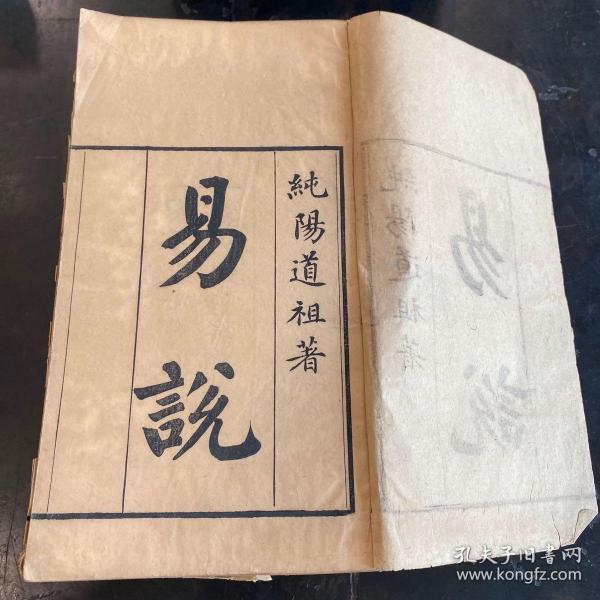 純陽道祖著
易說
孔夫子旧书网
www.kongfz.com